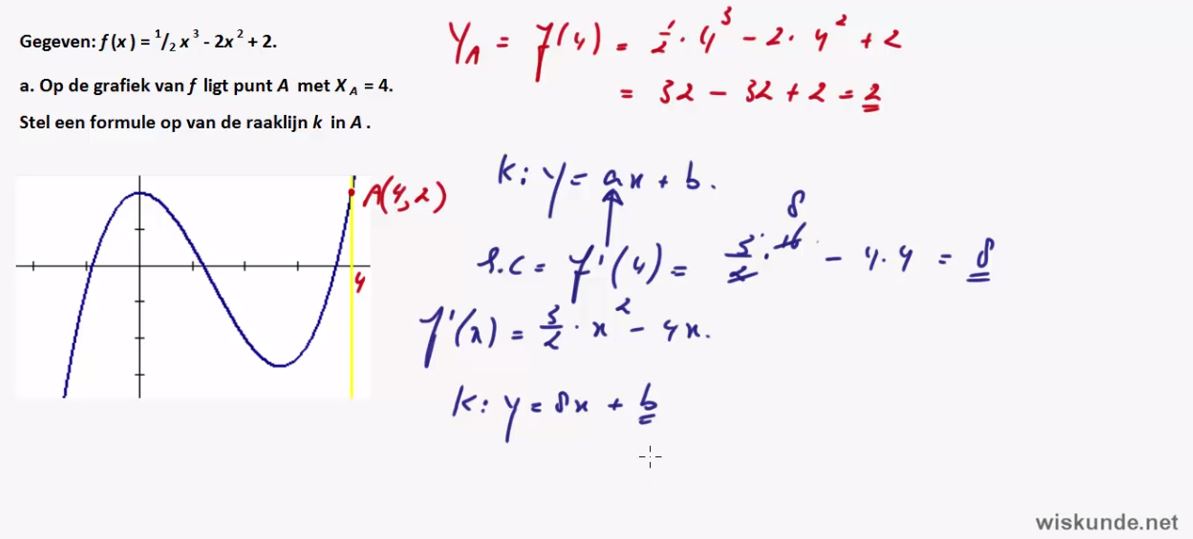 Gegeven: f(x) = ¹/₂x³ - 2x² + 2.
a. Op de grafiek van f ligt punt A met X_A = 4.
Stel een formule op van de raaklijn k in A.
Y_A = f(4) = ½ · 4³ - 2 · 4² + 2
= 32 - 32 + 2 = 2
A(4,2)
4
k: y = ax + b.
8
r.c = f'(4) = 3/2 · 16 - 4·4 = 8
f'(x) = 3/2 · x² - 4x.
k: y = 8x + b
wiskunde.net